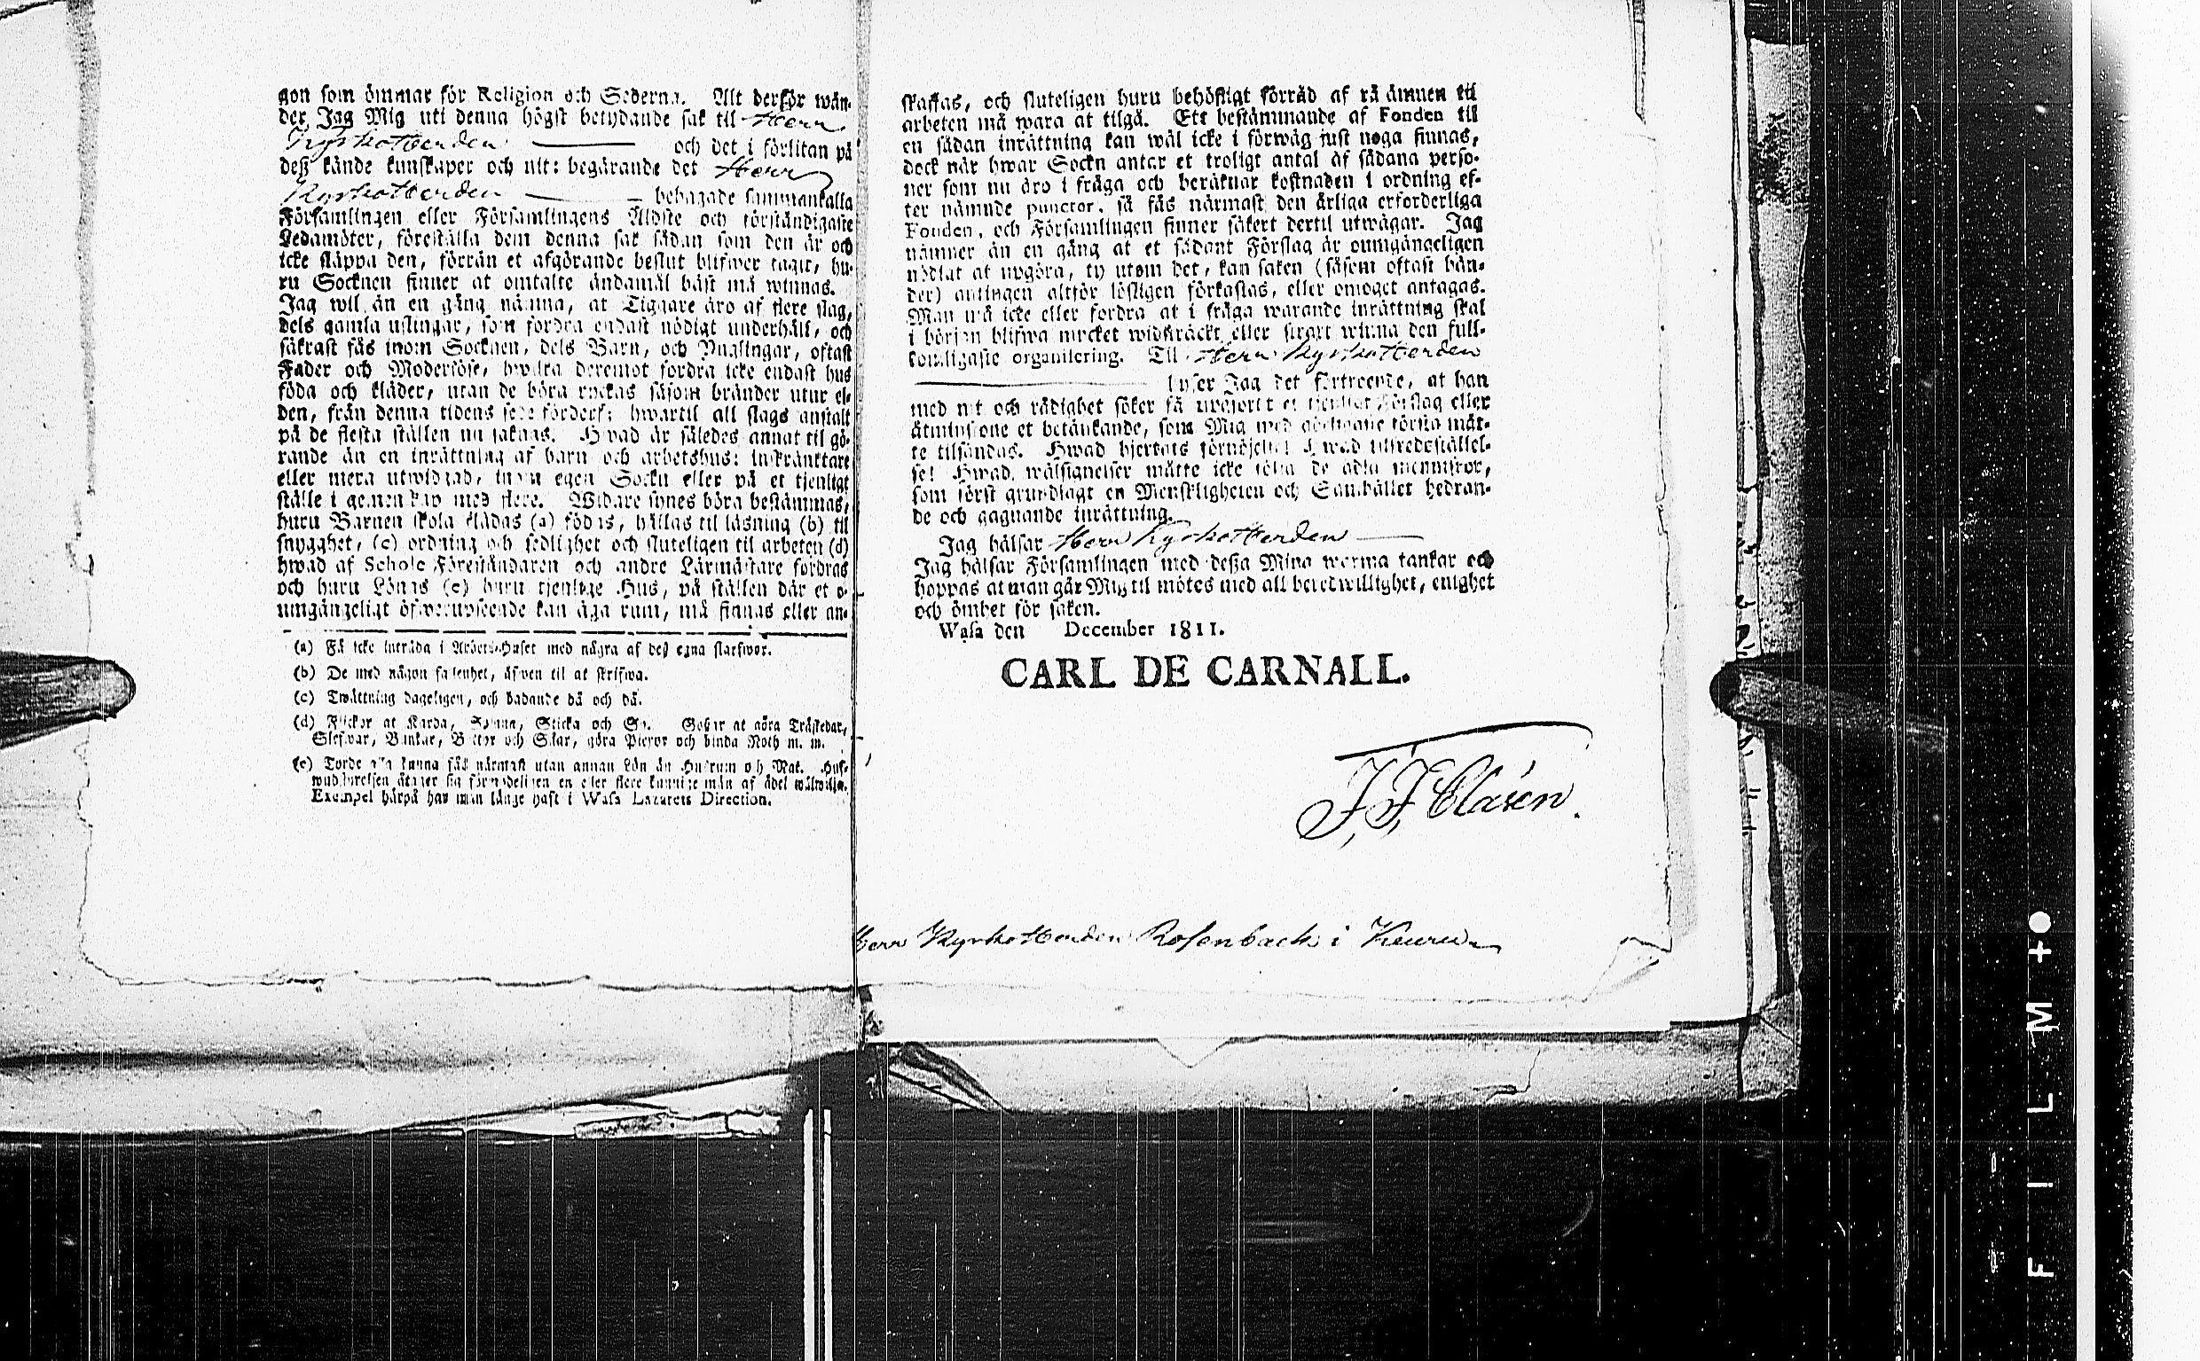 gon som ömmar för Religion och Sederna. Alt derför wän-
der Jag Mig uti denna högst betydande sak til Herr
KyrkoHerden och det i förlitan på
deß kände kunskaper och nit: begärande det Herr
KyrkoHerden behagade sammankalla
Församlingen eller Församlingens Äldste och förständigaste
Ledamöter, föreställa dem denna sak sådan som den är och
icke släppa den, förrän et afgörande beslut blifwer tagit, hu-
ru Socknen finner at omtalte ändamål bäst må winnas.
Jag wil än en gång nämna, at Tiggare äro af flere slag,
dels gamla uslingar, som fordra endast nödigt underhåll, och
säkrast fås inom Socknen, dels Barn, och Ynglingar, oftast
Fader och Moderlöse, hwilka deremot fordra icke endast hus
föda och kläder, utan de böra ryckas såsom bränder utur el-
den, från denna tidens sede förderf; hwartil all slags anstalt
på de flesta ställen nu saknas. Hwad är således annat til gö-
rande än en inrättning af barn och arbetshus: inskränktare
eller mera utwidgad, inom egen Sockn eller på et tjenligt
ställe i gemenskap med flere. Widare synes böra bestämmas,
huru Barnen skola klädas (a) födas, hållas til läsning (b) til
snygghet, (c) ordning och sedlighet och sluteligen til arbeten (d)
hwad af Schole Föreståndaren och andre Lärmästare fordras
och huru Lönas (e) huru tjenlige Hus, på ställen där et o-
umgängeligt öfwerupseende kan äga rum, må finnas eller an-
(a) Få icke inträda i Arbets-Huset med några af deß egna slarfwor.
(b) De med någon fallenhet, äfwen til at skrifwa.
(c) Twättning dageligen, och badande då och då.
(d) Flickor at Karda, Spinna, Sticka och Sy. Goßar at göra Träskedar,
Slefwar, Bunkar, Byttor och Sålar, göra Pipor och binda Noth m. m.
(e) Torde alla kunna fås närmast utan annan Lön än Husrum och Mat. Huf-
wudstyrelsen åtager sig förmodeligen en eller flere kunnige män af ädel wälwilja.
Exempel härpå har man länge haft i Wasa Lazarets Direction.
skaffas, och sluteligen huru behöfligt förråd af rå ämnen til
arbeten må wara at tilgå. Ett bestämmande af Fonden till
en sådan inrättning kan wäl icke i förwäg just noga finnas,
dock när hwar Sockn antar et troligt antal af sådana perso-
ner som nu äro i fråga och beräknar kostnaden i ordning ef-
ter nämnde puncter, så fås närmast den årliga erforderliga
Fonden, och Församlingen finner säkert dertil utwägar. Jag
nämner än en gång at et sådant Förslag är oumgängeligen
nödigt at uppgöra, ty utom det, kan saken (såsom oftast hän-
der) antingen altför lösligen förkastas, eller omoget antagas.
Man må icke eller fordra at i fråga warande inrättning skal
i början blifwa mycket widsträckt eller straxt winna den full-
komligaste organisering. Til Herr KyrkoHerden
hyser Jag det förtroende, at han
med nit och rådighet söker få upgjordt et tjenligt Förslag eller
åtminstone et betänkande, som Mig med görligaste första måt-
te tilsändas. Hwad hjertats förnöjelse! Hwad tilfredsställel-
se! Hwad wälsignelser måtte icke följa de ädla menniskor,
som först grundlagt en Menskligheten och Samhället hedran-
de och gagnande inrättning.
Jag hälsar Herr KyrkoHerden
Jag hälsar Församlingen med deßa Mina warma tankar och
hoppas at man går Mig til mötes med all beredwillighet, enighet
och ömhet för saken.
Wasa den December 1811.
CARL DE CARNALL.
J, J, Clasén.
Herr KyrkoHerden Rosenback i Keuru
FILM